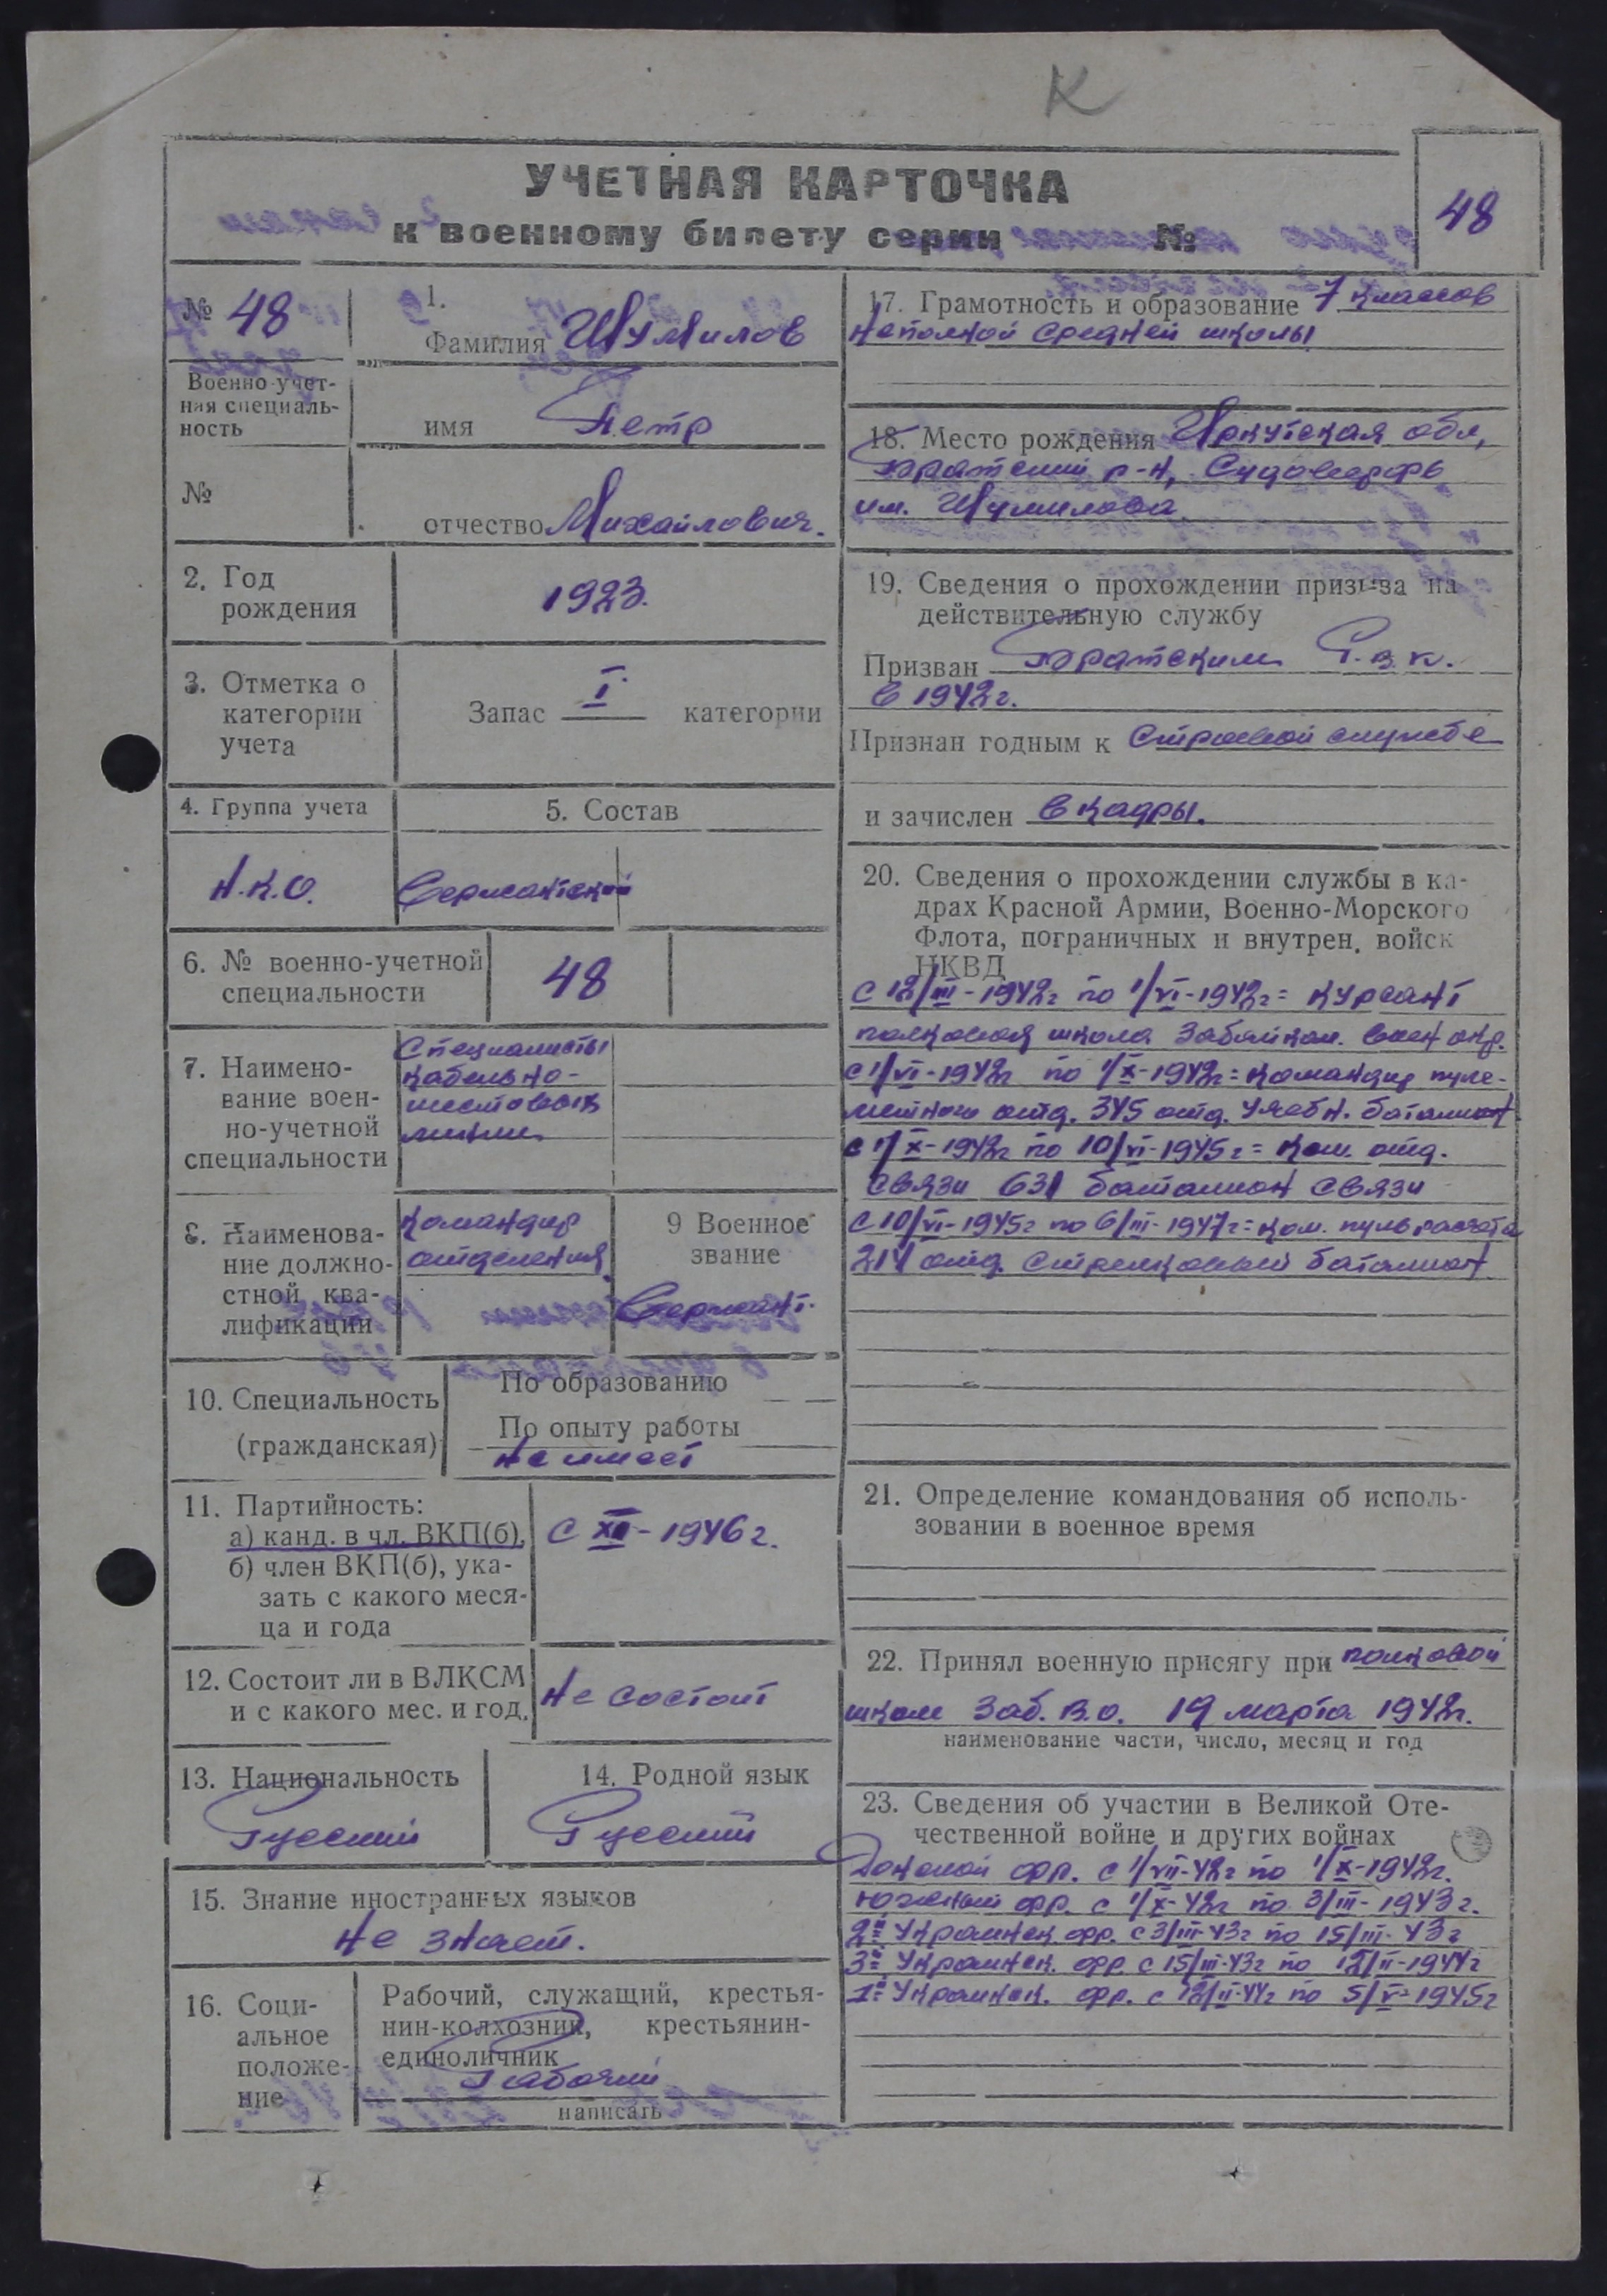 К
УЧЕТНАЯ КАРТОЧКА
к военному билету серии №
48
№ 48
1.
Фамилия Шумилов
Военно-учет-
ная специаль-
ность
имя Петр
№
отчество Михайлович.
2. Год
рождения
1923.
3. Отметка о
категории
учета
Запас I категории
4. Группа учета
5. Состав
Н.К.О.
Сержантский
6. № военно-учетной
специальности
48
7. Наимено-
вание воен-
но-учетной
специальности
Специалисты
кабельно-
шестовых
линии
8. Наименова-
ние должно-
стной ква-
лификации
командир
отделения
9 Военное
звание
Сержант.
10. Специальность
(гражданская)
По образованию
По опыту работы
не имеет
11. Партийность:
а) канд. в чл. ВКП(б),
б) член ВКП(б), ука-
зать с какого меся-
ца и года
с XII-1946 г.
12. Состоит ли в ВЛКСМ
и с какого мес. и год.
не состоит
13. Национальность
Русский
14. Родной язык
Русский
15. Знание иностранных языков
не знает.
16. Соци-
альное
положе-
ние
Рабочий, служащий, крестья-
нин-колхозник, крестьянин-
единоличник
Рабочий
написать
17. Грамотность и образование 7 классов
неполной средней школы
18. Место рождения Иркутская обл,
Братский р-н, Судоверфь
им. Шумилова
19. Сведения о прохождении призыва на
действительную службу
Призван Братским Р.в.к.
в 1942г.
Признан годным к Строевой службе
и зачислен в кадры.
20. Сведения о прохождении службы в ка-
драх Красной Армии, Военно-Морского
Флота, пограничных и внутрен. войск
НКВД
с 12/III-1942г по 1/VI-1942г = курсант
полковая школа Забайкал. воен окр.
с 1/VI-1942г по 1/X-1942г = командир пуле-
метного отд. 345 отд. учебн. батальон
с 1/X-1942г по 10/VI-1945г = ком. отд.
связи 631 батальон связи
с 10/VI-1945г по 6/III-1947г = ком. пульрасчета
214 отд. стрелковый батальон
21. Определение командования об исполь-
зовании в военное время
22. Принял военную присягу при полковой
школе Заб. В.О. 19 марта 1942г.
наименование части, число, месяц и год
23. Сведения об участии в Великой Оте-
чественной войне и других войнах
Донской фр. с 1/VII-42г по 1/X-1942г.
Южный фр. с 1/X-42г по 3/III-1943г.
2й Украинск. фр. с 3/III-43г по 15/III-43г
3й Украинск. фр. с 15/III-43г по 12/II-1944г
1й Украинск. фр. с 12/II-44г по 5/V-1945г